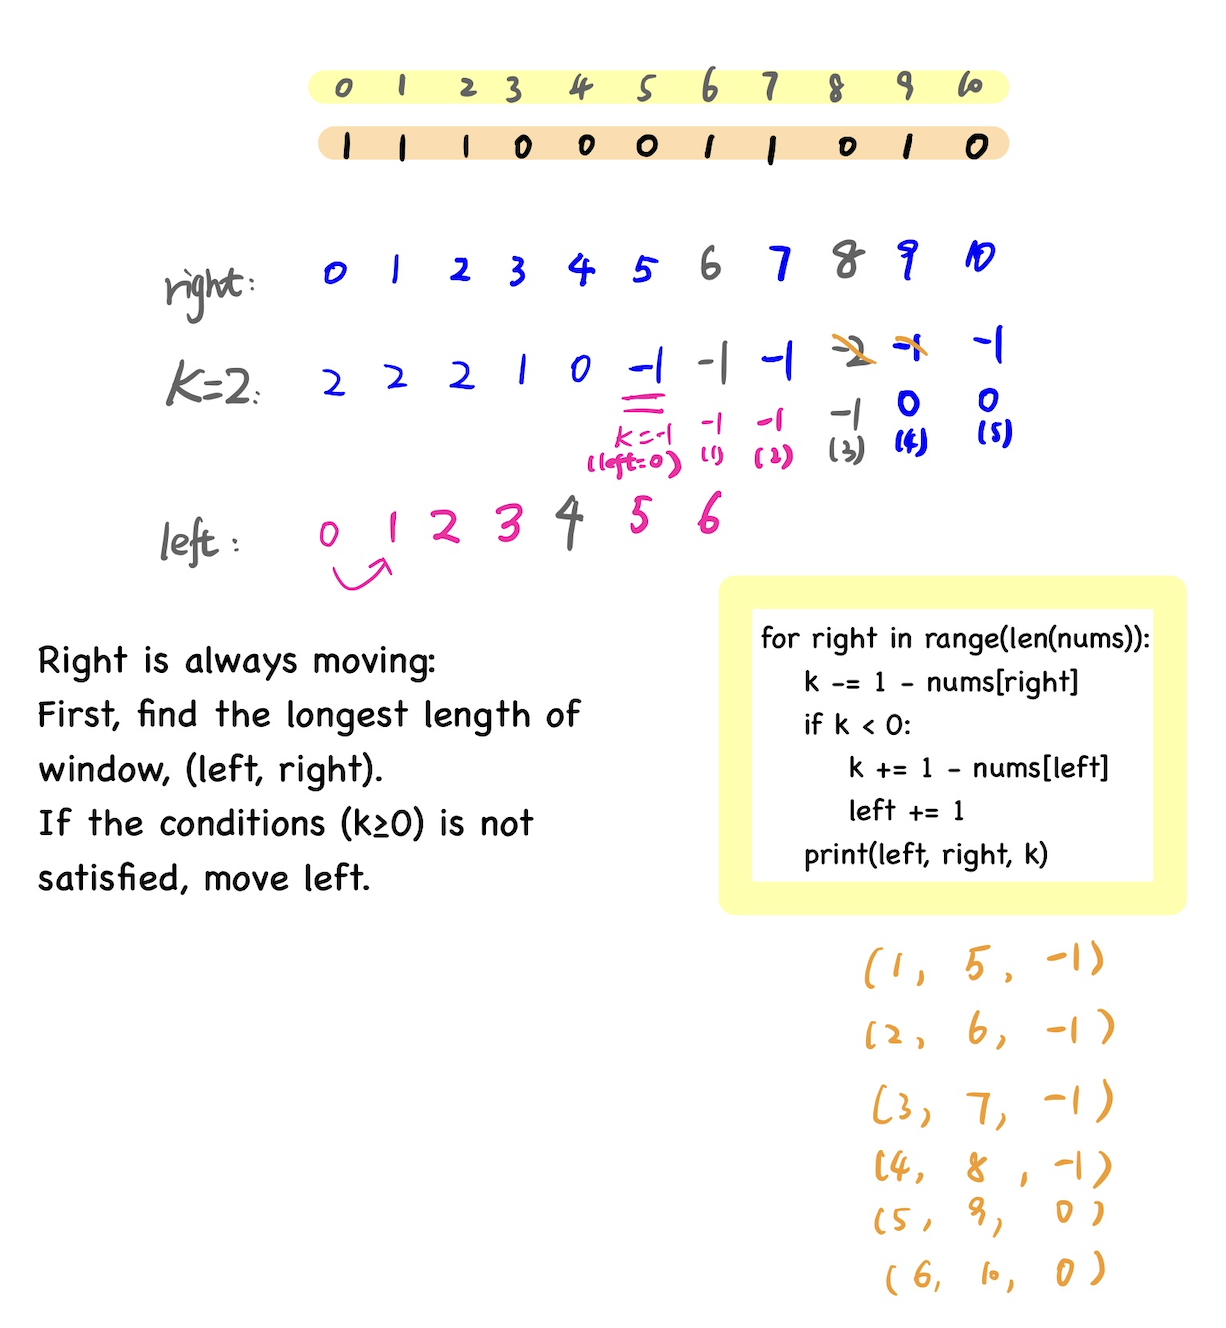 0 1 2 3 4 5 6 7 8 9 10
1 1 1 0 0 0 1 1 0 1 0
right: 0 1 2 3 4 5 6 7 8 9 10
K=2: 2 2 2 1 0 -1 -1 -1 -2 -1 -1
k=-1 -1 -1 -1 0 0
(left=0) (1) (2) (3) (4) (5)
left: 0 1 2 3 4 5 6
Right is always moving:
First, find the longest length of
window, (left, right).
If the conditions (k≥0) is not
satisfied, move left.
for right in range(len(nums)):
k -= 1 - nums[right]
if k < 0:
k += 1 - nums[left]
left += 1
print(left, right, k)
(1, 5, -1)
(2, 6, -1)
(3, 7, -1)
(4, 8, -1)
(5, 9, 0)
(6, 10, 0)